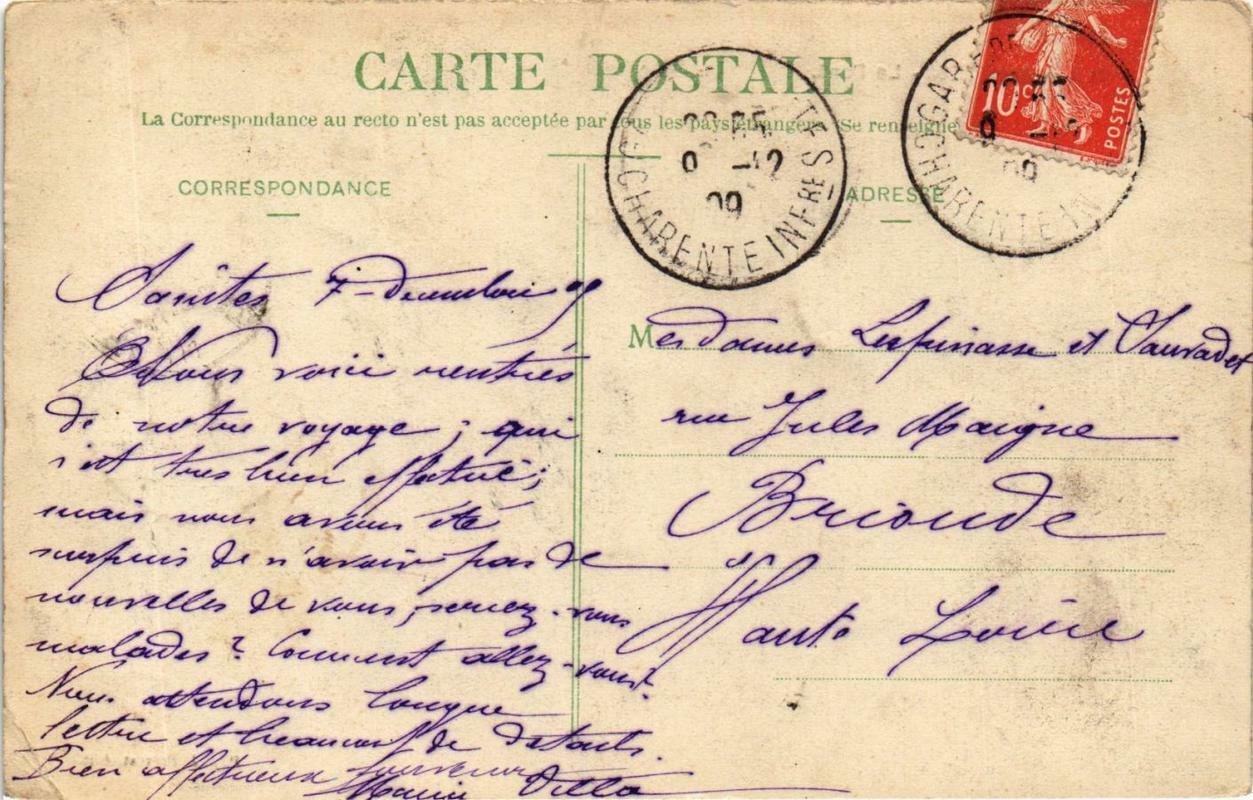 CARTE POSTALE
La Correspondance au recto n'est pas acceptée par tous les pays étrangers (Se renseigne
CORRESPONDANCE
Saintes 7 - Decembre 09
Nous voici rentrés
de notre voyage ; qui
s'est très bien effectué ;
mais nous avons été
surpris de n'avoir pas de
nouvelles de vous, seriez-vous
malades ? Comment allez-vous ?
Nous attendons longue
lettre et beaucoup de details.
Bien affectueux souvenir
Marie
ADRESSE
Mesdames Lespinasse et Sauvadet
rue Jules Maigne
Brioude
Haute Loire
CHARENTE INFRE
9 -12
09
GARE
CHARENTE IN
9 -12
09
10c
POSTES